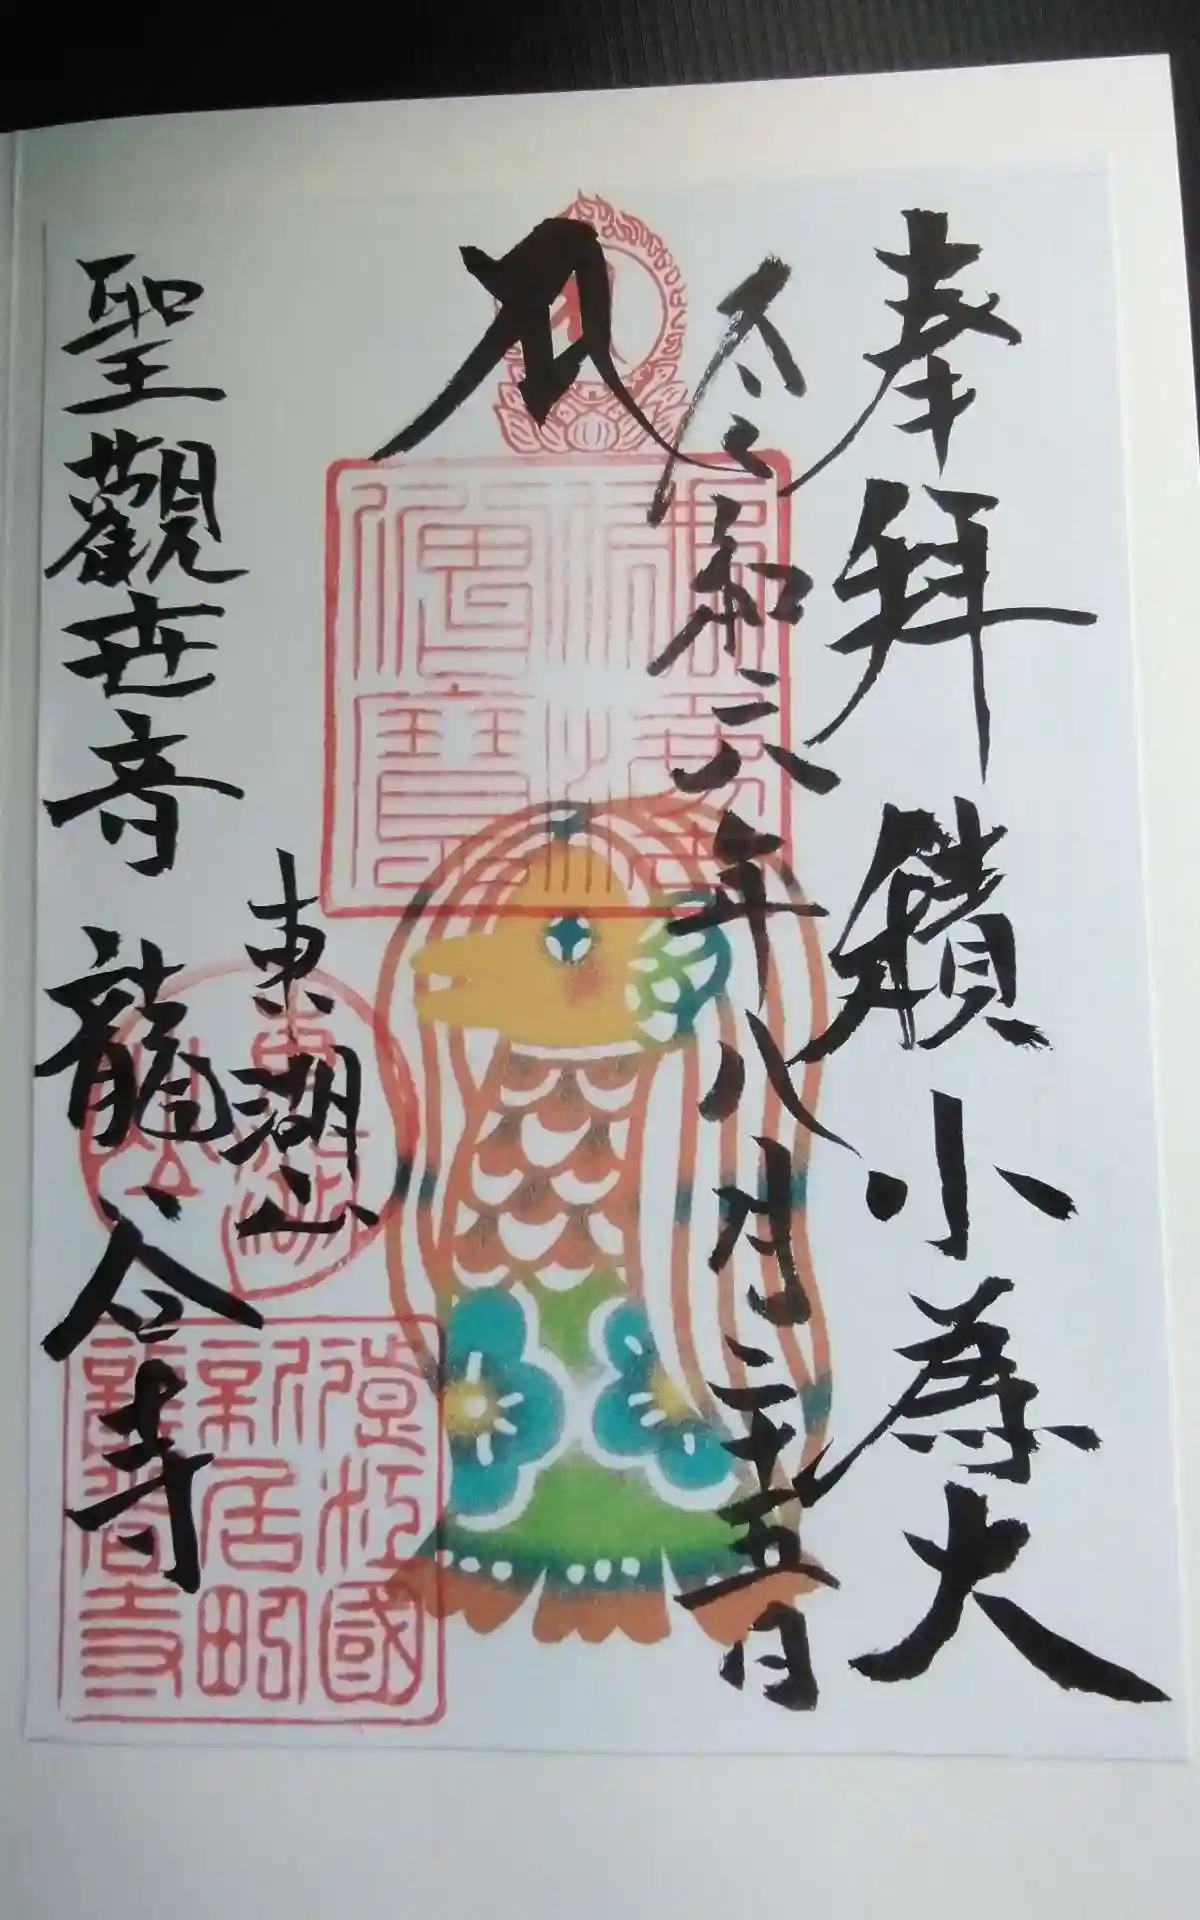 奉拜 積小為大
令和六年八月二十五日
東湖山
聖觀世音 龍谷寺
遠江國
新居町
龍谷寺